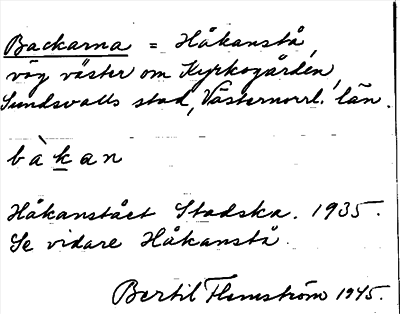 Backarna = Håkanstå,
väg väster om Kyrkogården,
Sundsvalls stad, Västernorrl. län.
bàkan
Håkanstået Stadska. 1935.
Se vidare Håkanstå.
Bertil Flemström 1945.